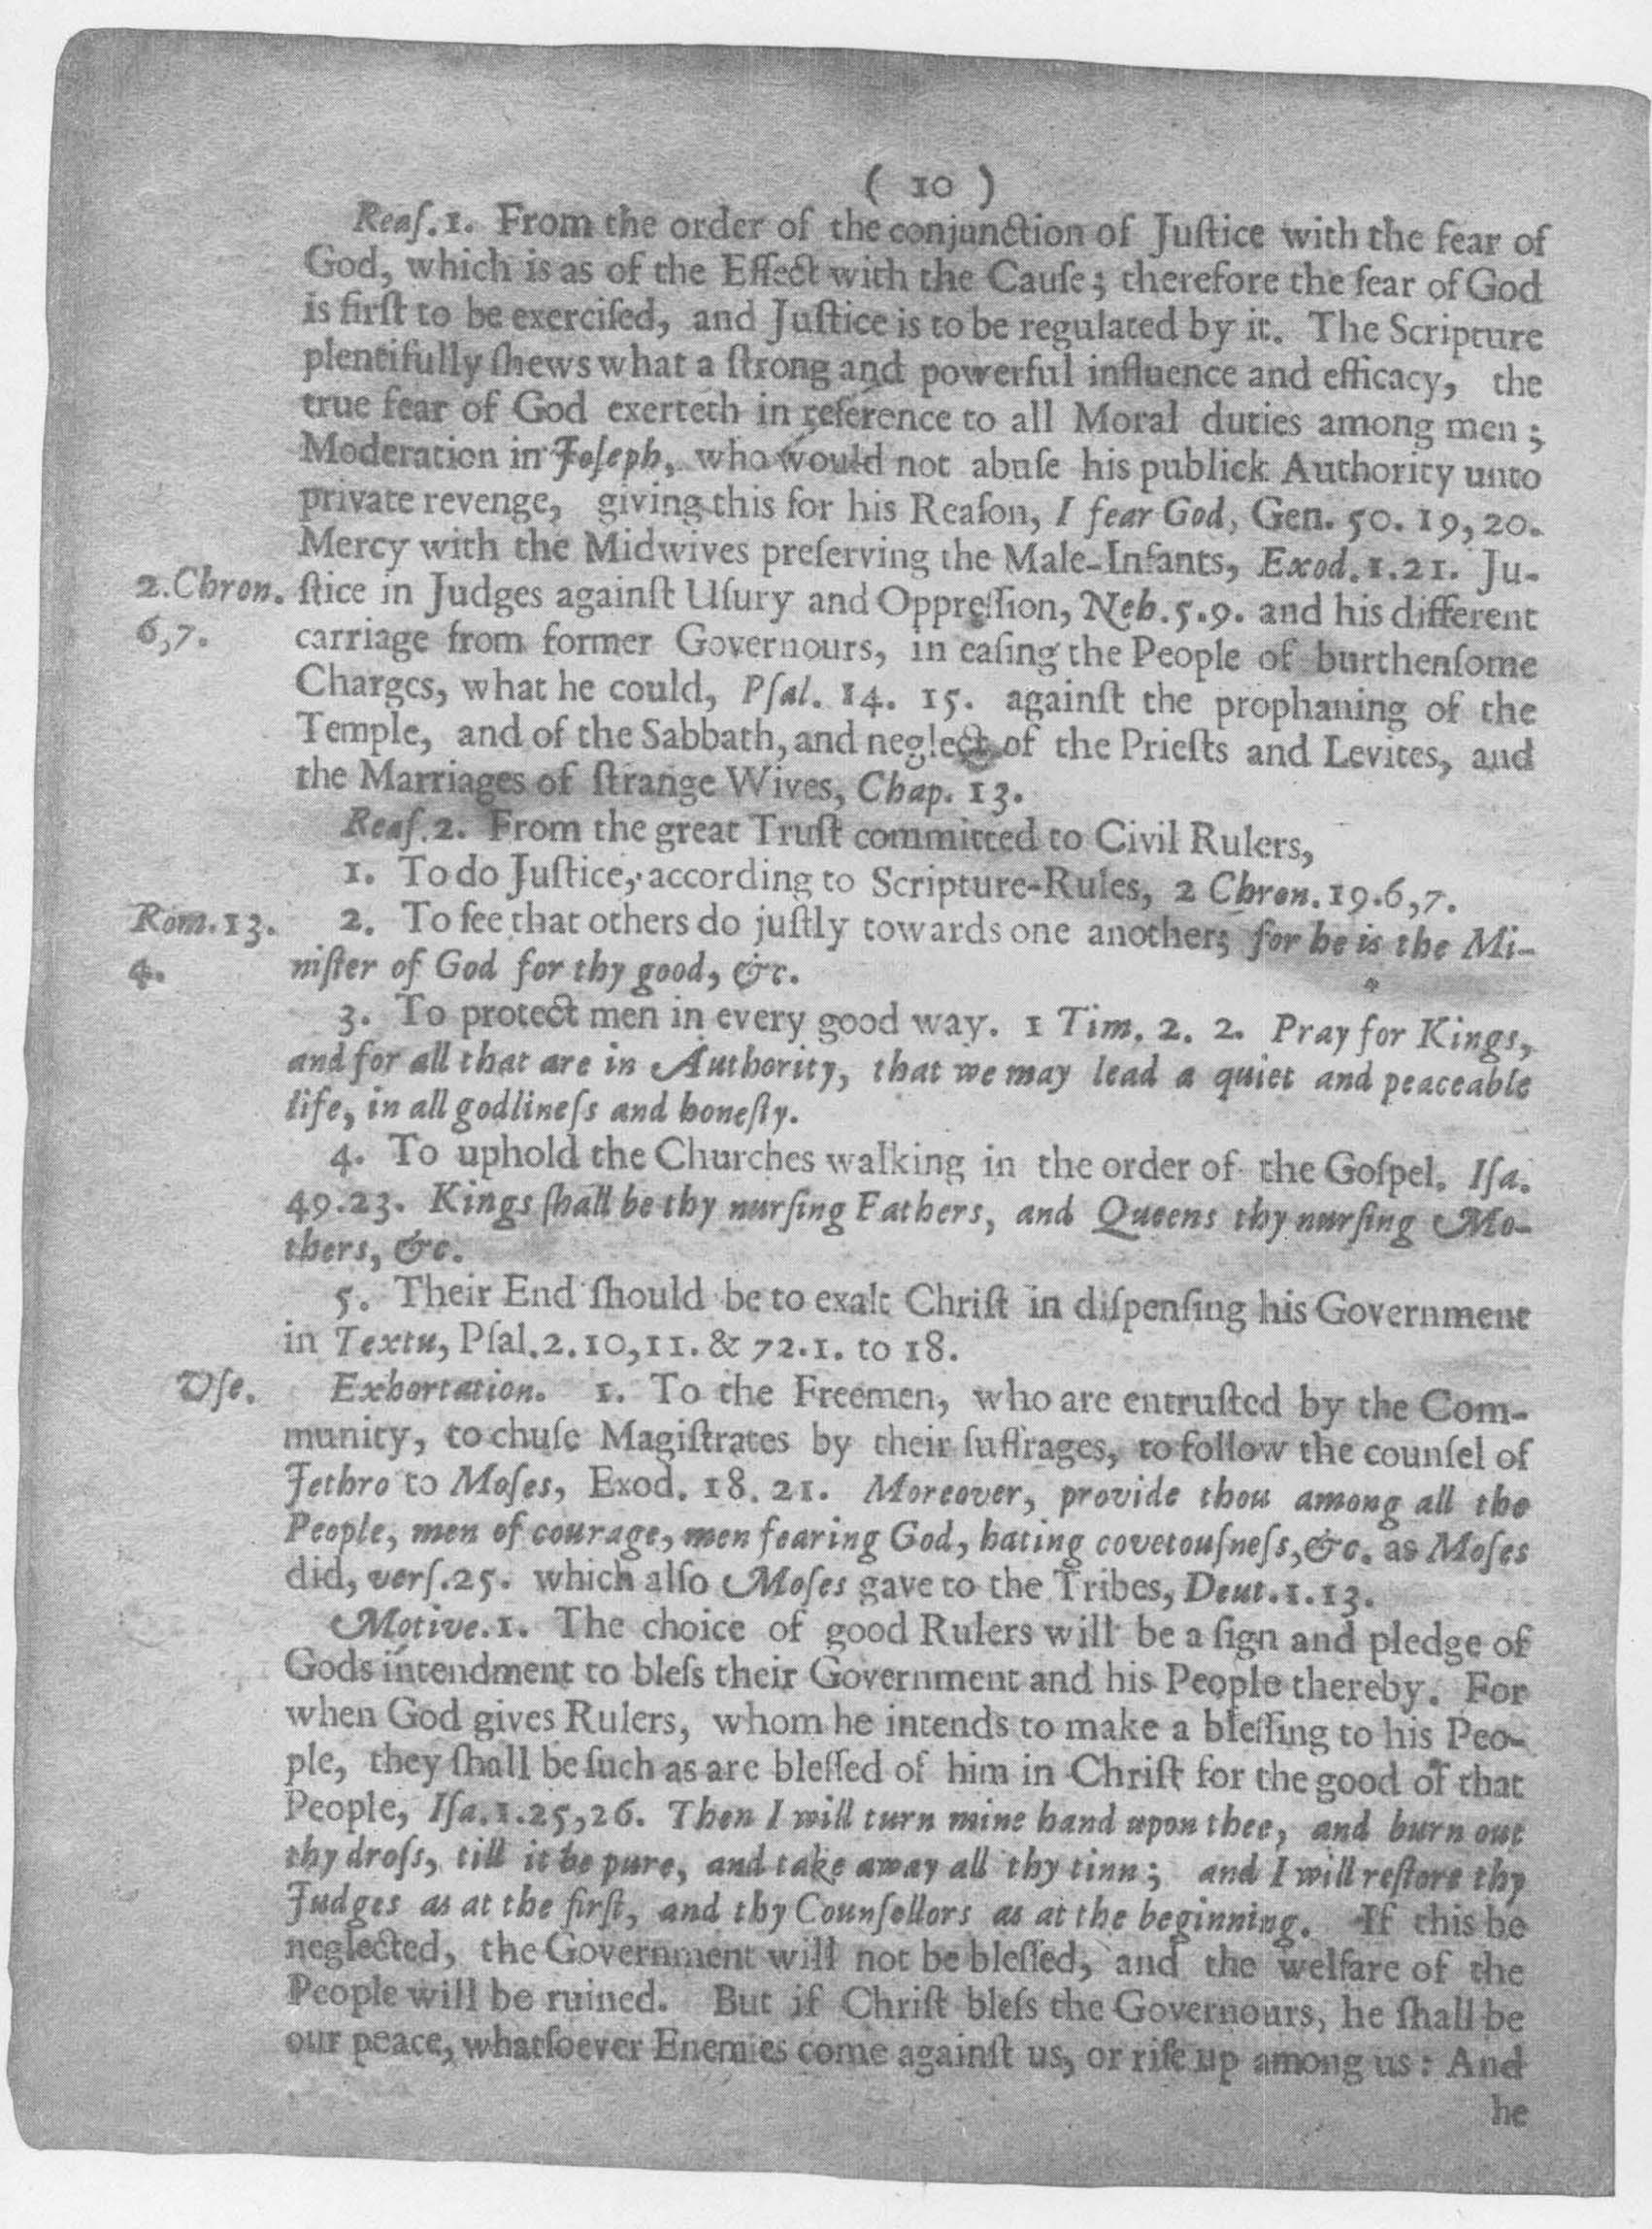 ( 10 )
Reaſ.1. From the order of the conjunction of Juſtice with the fear of
God, which is as of the Effect with the Cauſe; therefore the fear of God
is firſt to be exerciſed, and Juſtice is to be regulated by it. The Scripture
plentifully ſhews what a ſtrong and powerful influence and efficacy, the
true fear of God exerteth in reference to all Moral duties among men;
Moderation in Joſeph, who would not abuſe his publick Authority unto
private revenge, giving this for his Reaſon, I fear God, Gen. 50. 19, 20.
Mercy with the Midwives preſerving the Male-Infants, Exod.1.21. Ju-
2.Chron. ſtice in Judges againſt Uſury and Oppreſſion, Neh.5.9. and his different
6,7. carriage from former Governours, in eaſing the People of burthenſome
Charges, what he could, Pſal. 14. 15. againſt the prophaning of the
Temple, and of the Sabbath, and neglect of the Prieſts and Levites, and
the Marriages of ſtrange Wives, Chap. 13.
Reaſ.2. From the great Truſt committed to Civil Rulers,
1. To do Juſtice, according to Scripture-Rules, 2 Chron.19.6,7.
Rom.13. 2. To ſee that others do juſtly towards one another; for he is the Mi-
4. niſter of God for thy good, &c.
3. To protect men in every good way. 1 Tim. 2. 2. Pray for Kings,
and for all that are in Authority, that we may lead a quiet and peaceable
life, in all godlineſs and honeſty.
4. To uphold the Churches walking in the order of the Goſpel. Iſa.
49.23. Kings ſhall be thy nurſing Fathers, and Queens thy nurſing Mo-
thers, &c.
5. Their End ſhould be to exalt Chriſt in diſpenſing his Government
in Textu, Pſal.2.10,11. & 72.1. to 18.
Uſe. Exhortation. 1. To the Freemen, who are entruſted by the Com-
munity, to chuſe Magiſtrates by their ſuffrages, to follow the counſel of
Jethro to Moſes, Exod. 18. 21. Moreover, provide thou among all the
People, men of courage, men fearing God, hating covetouſneſs, &c. as Moſes
did, verſ.25. which alſo Moſes gave to the Tribes, Deut.1.13.
Motive.1. The choice of good Rulers will be a ſign and pledge of
Gods intendment to bleſs their Government and his People thereby. For
when God gives Rulers, whom he intends to make a bleſſing to his Peo-
ple, they ſhall be ſuch as are bleſſed of him in Chriſt for the good of that
People, Iſa.1.25,26. Then I will turn mine hand upon thee, and burn out
thy droſs, till it be pure, and take away all thy tinn; and I will reſtore thy
Judges as at the firſt, and thy Counſellors as at the beginning. If this be
neglected, the Government will not be bleſſed, and the welfare of the
People will be ruined. But if Chriſt bleſs the Governours, he ſhall be
our peace, whatſoever Enemies come againſt us, or riſe up among us: And
he